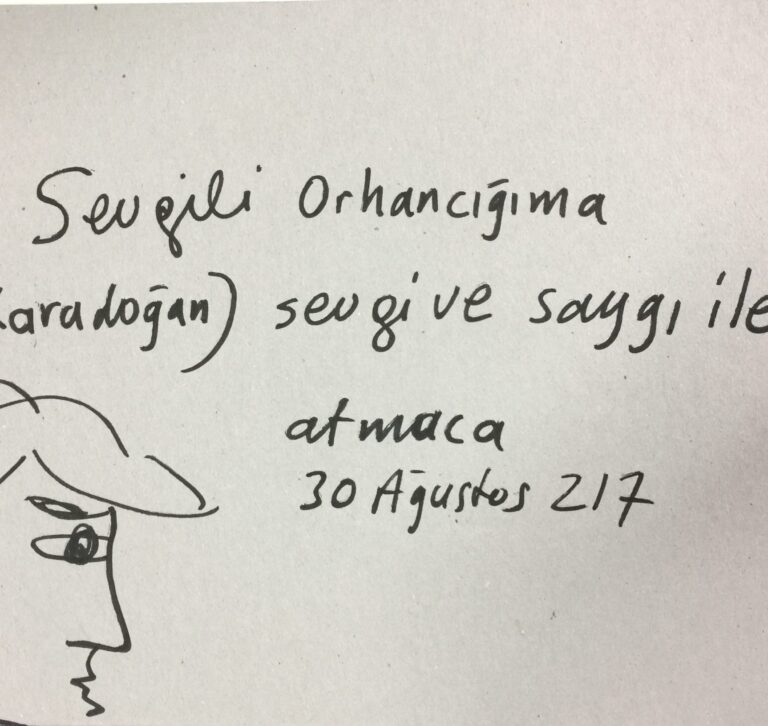 Sevgili Orhancığıma
Karadoğan) sevgi ve saygı ile
atmaca
30 Ağustos 217